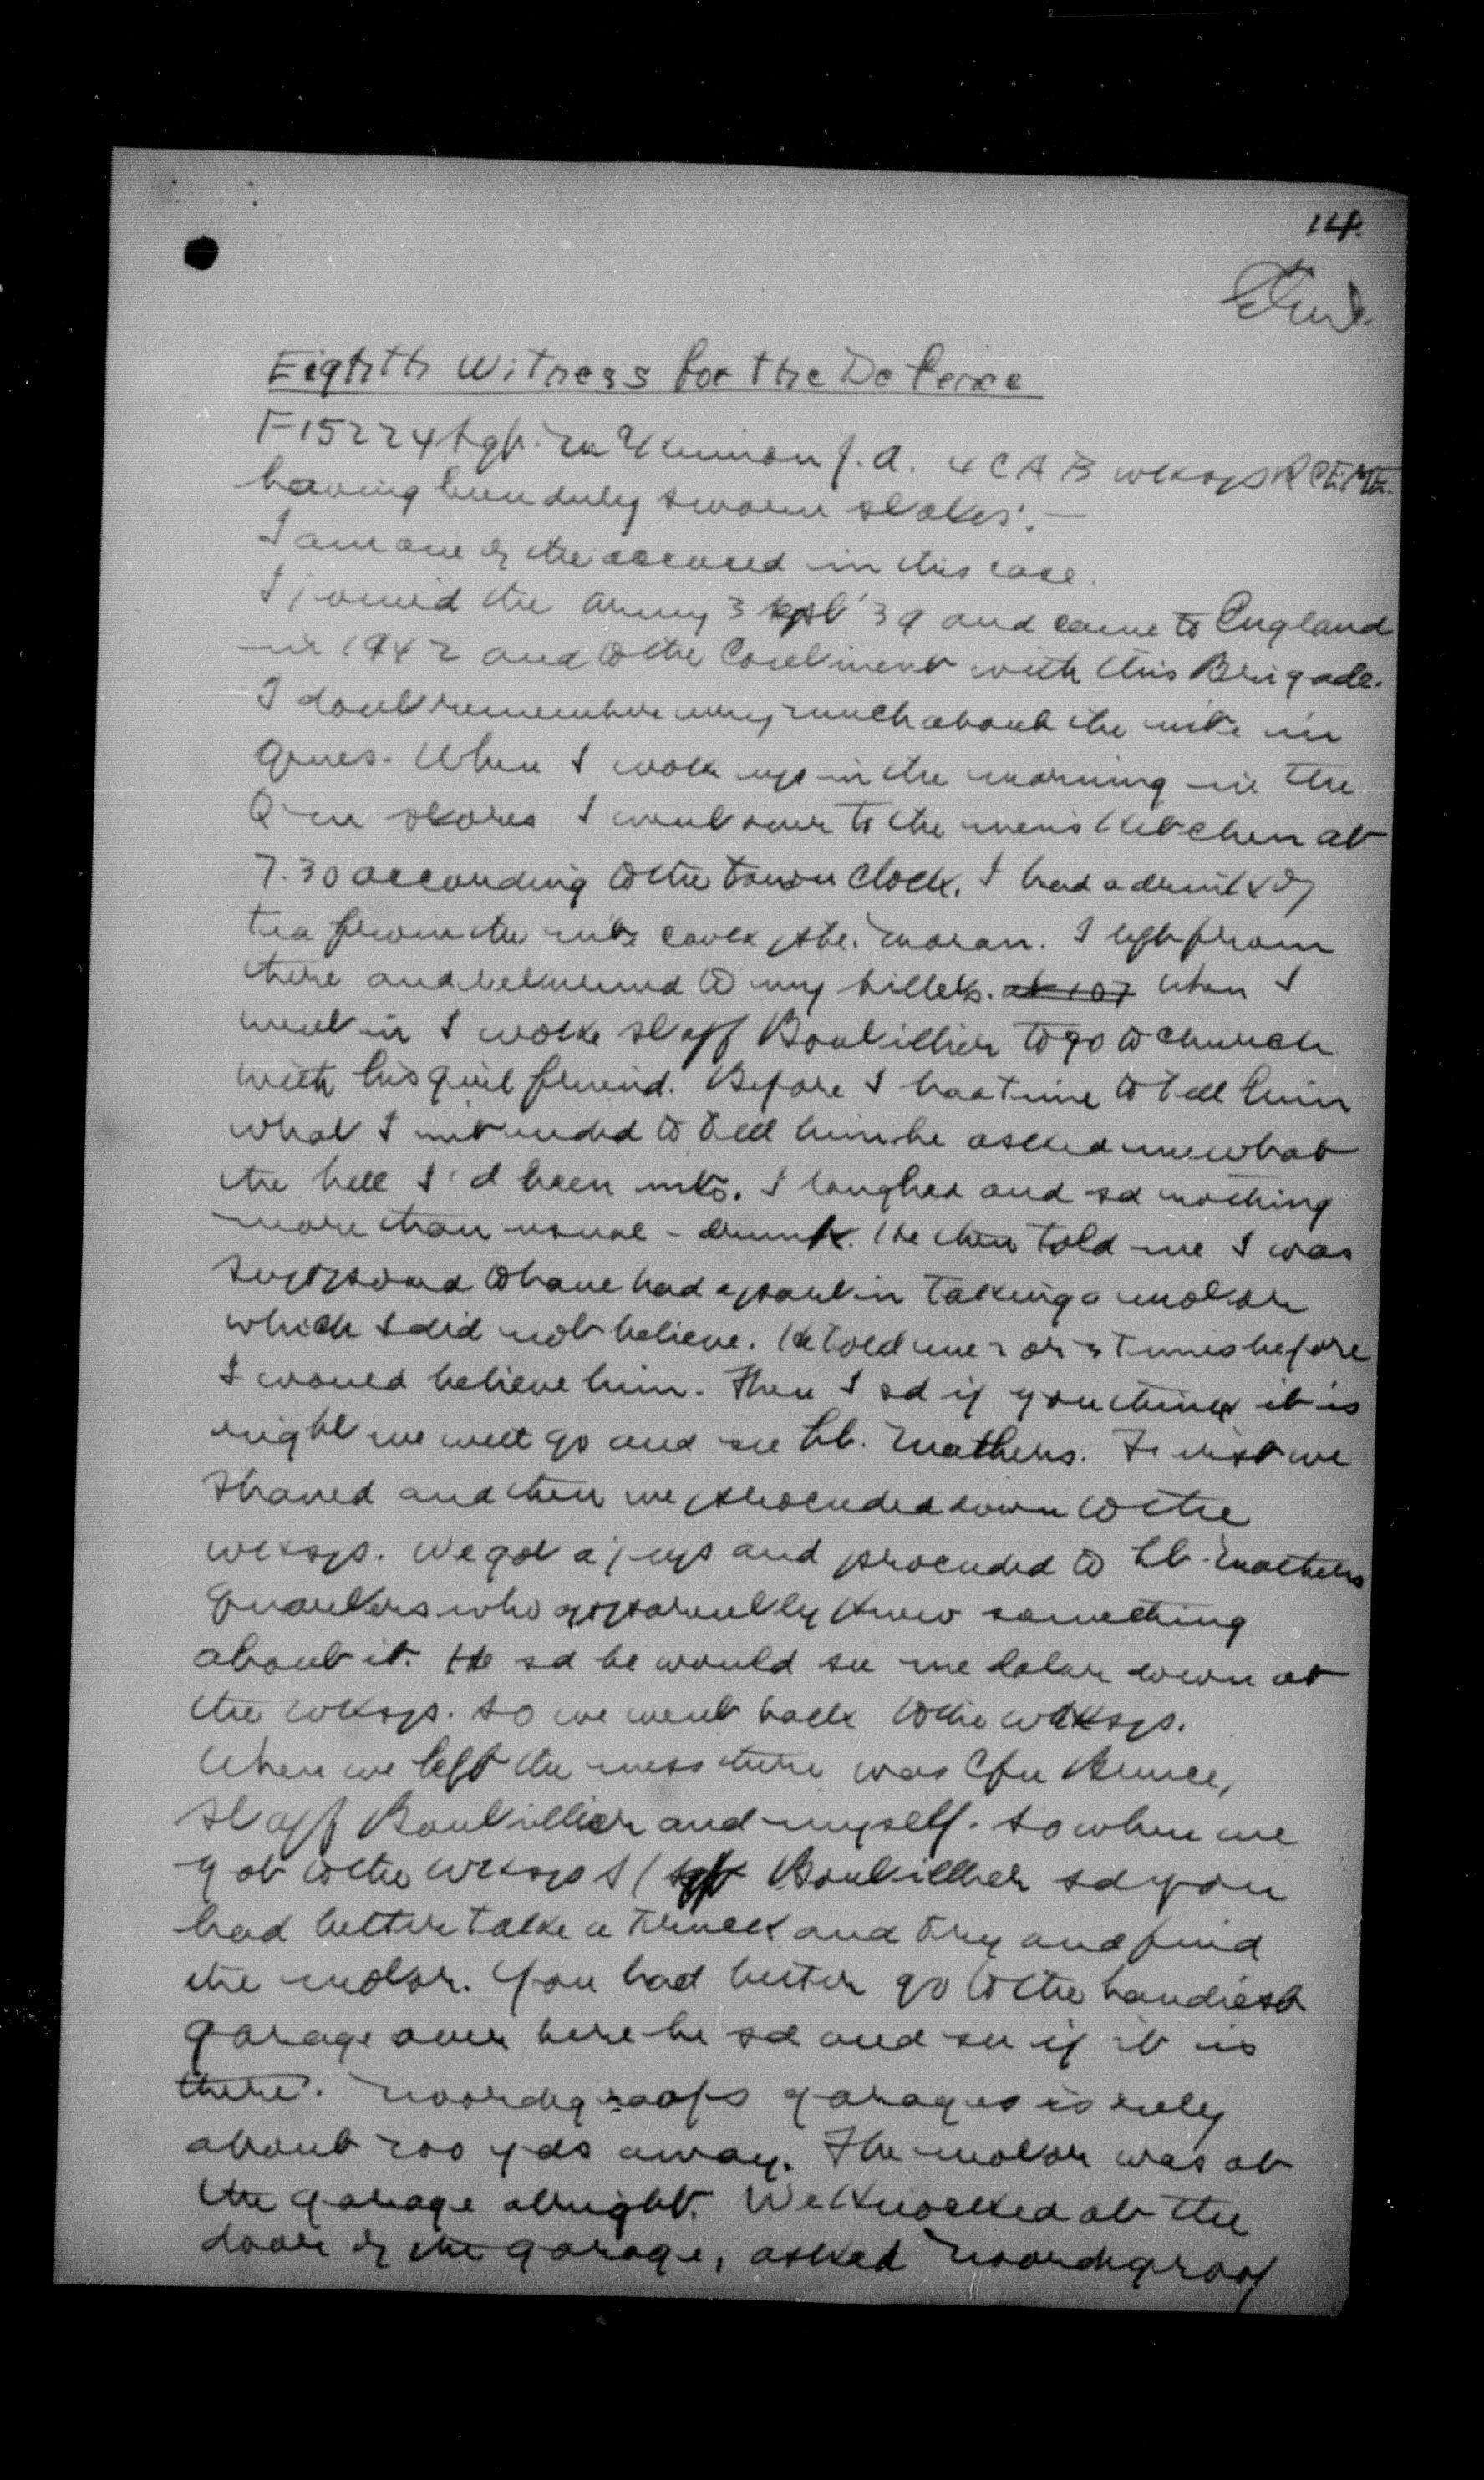 14.
Eighth Witness for the Defence
F15224 Sgt. McKinnon J.A. 4 CAB wksps RCEME.
having been duly sworn states:—
I am one of the accused in this case.
I joined the army 3 Sept '39 and came to England
in 1942 and to the Continent with this Brigade.
I dont remember very much about the nite in
When I woke up in the morning in the
Q m stores I went over to the men's kitchen at
7.30 according to the town clock. I had a drink of
tea from the nite cook Pte. Moran. I left from
there and returned to my billets. at 107 When I
went in I woke Staff Boutillier to go to church
with his girl friend. Before I had time to tell him
what I intended to tell him he asked me what
the hell I'd been into. I laughed and sd nothing
more than usual - drunk. He then told me I was
supposed to have had a part in taking a motor
which I did not believe. He told me 2 or 3 times before
I would believe him. Then I sd if you think it is
right we will go and see Lt. Mathers. First we
shaved and then we proceeded down to the
wksps. We got a jeep and proceeded to Lt. Mathers
quarters who apparently knew something
about it. He sd he would see me later down at
the wksps. so we went back to the wksps.
When we left the mess there was Cfn Bruce,
Staff Boutillier and myself. So when we
got to the wksps S/Sgt Boutillier sd you
had better take a truck and try and find
the motor. You had better go to the handiest
garage over here he sd and see if it is
there. Noordegroofs garages is only
about 200 yds away. The motor was at
the garage allright. We knocked at the
door of the garage, asked Noordegroof